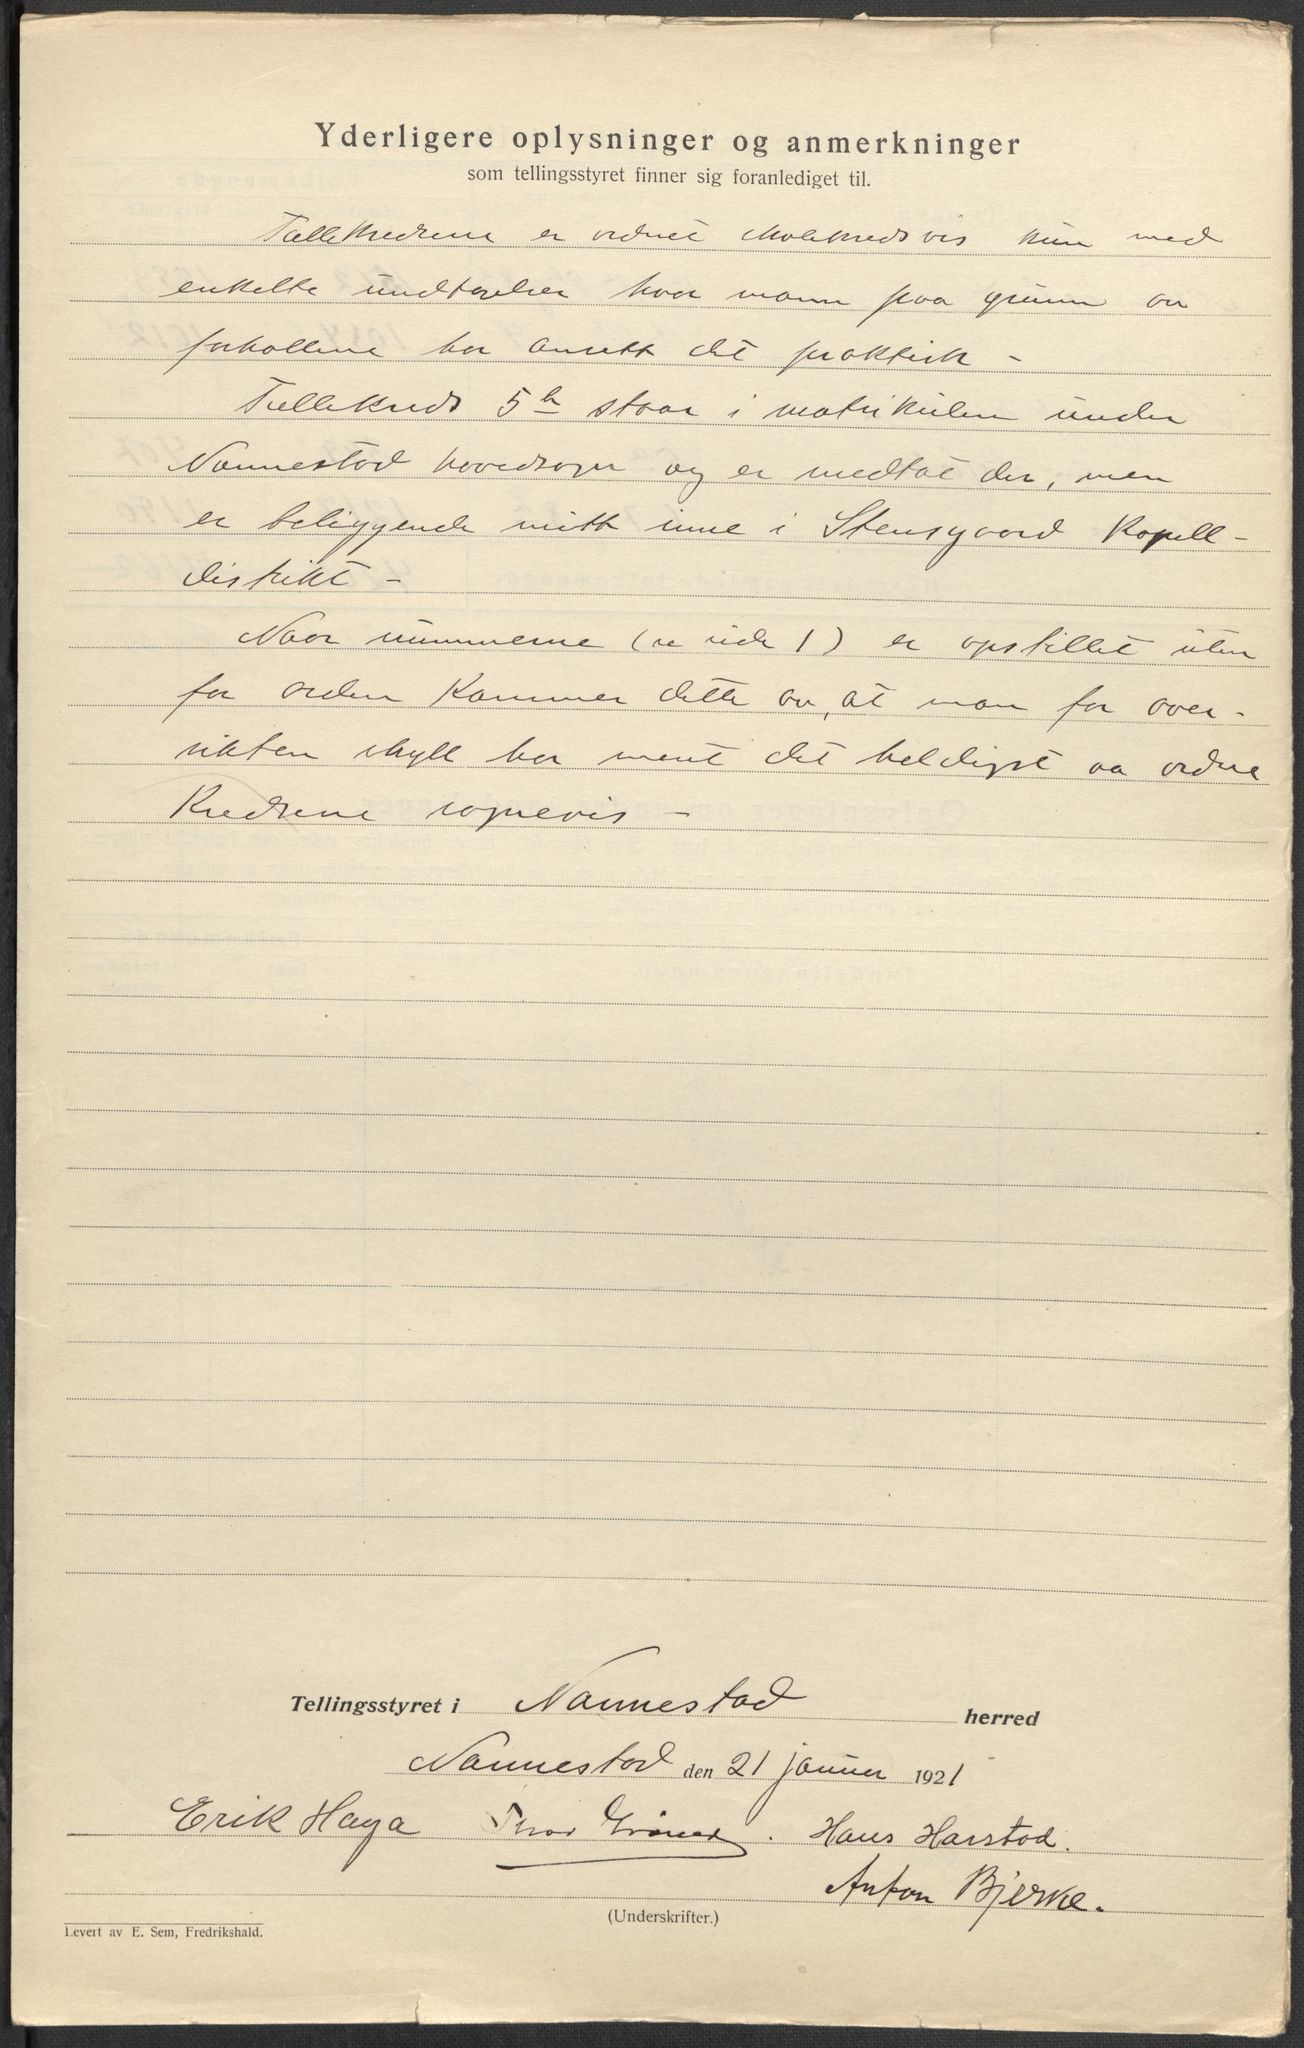 Yderligere oplysninger og anmerkninger
som tellingsstyret finner sig foranlediget til.
Tællekredsene er ordnet skolekredsvis kun med
enkelte undtagelser hvor mann paa grunn av
forhollene har ansett det praktisk -
Tællekreds 5b staar i matrikulen under
Nannestad hovedsogn og er medtat der, men
er beliggende mitt inne i Stensgaard Kapell-
distrikt -
Naar nummerne (se side 1) er opstillet uten
for orden kommer dette av, at man for over-
sikten skyll har ment det heldigst aa ordne
Kredsene sognevis -
Tellingsstyret i Nannestad herred
Nannestad den 21 januar 1921
Erik Haga Thor . Hans Harstad.
Anton Bjerke.
(Underskrifter.)
Levert av E. Sem, Fredrikshald.